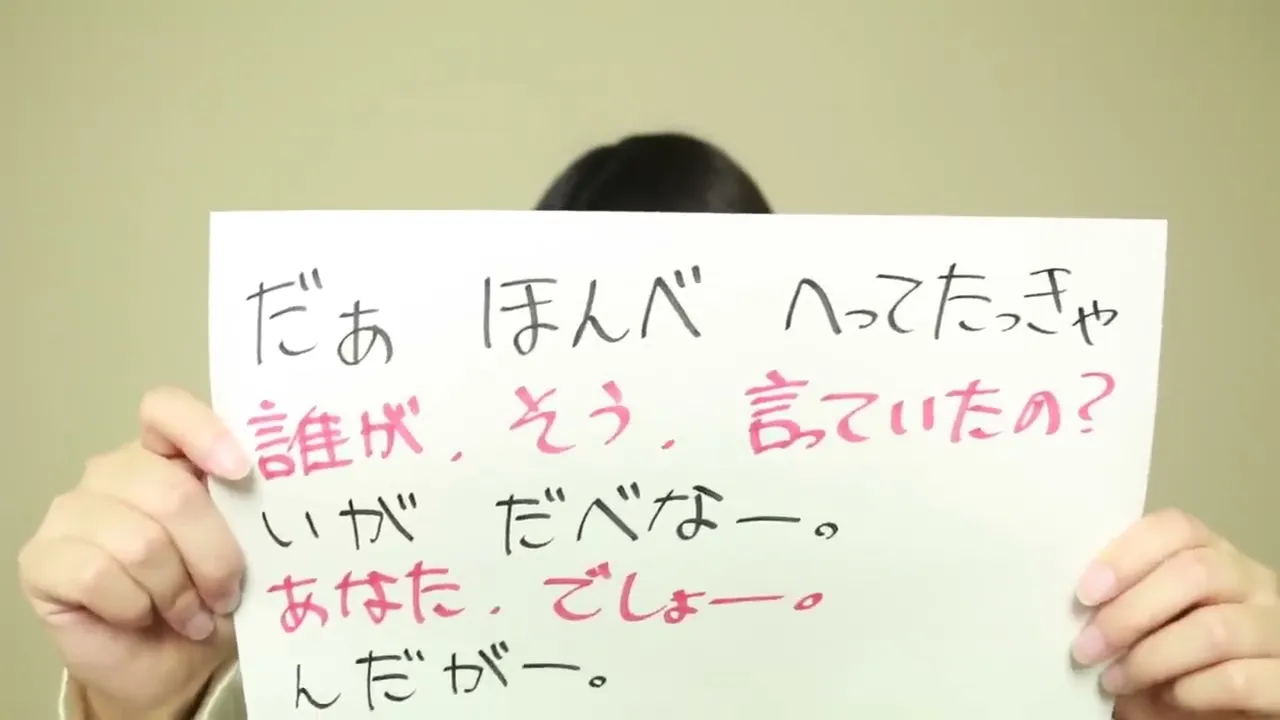 だぁ ほんべ へってたっきゃ
誰が、そう、言っていたの?
いが だべなー。
あなた、でしょー。
んだがー。